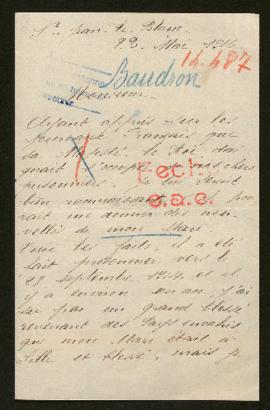 St Jean le Blanc
22 Mai 1916
14.487
Baudron
Monsieur
Ayant appris sur les
journaux Français que
sa Majesté le Roi
d'occuper de nos chers
prisonniers. Je lui serait
bien reconnaissante s'il pou
vait me donner des nou
velles de mon Mari
Fech.
e.a.c.
tous les faits, il a été
fait prisonnier vers le
28 Septembre 1914 et il
y a environ un an j'ai
su par un grand blessé
revenant des Pays envahis
que mon Mari était à
Lille et blessé, mais je